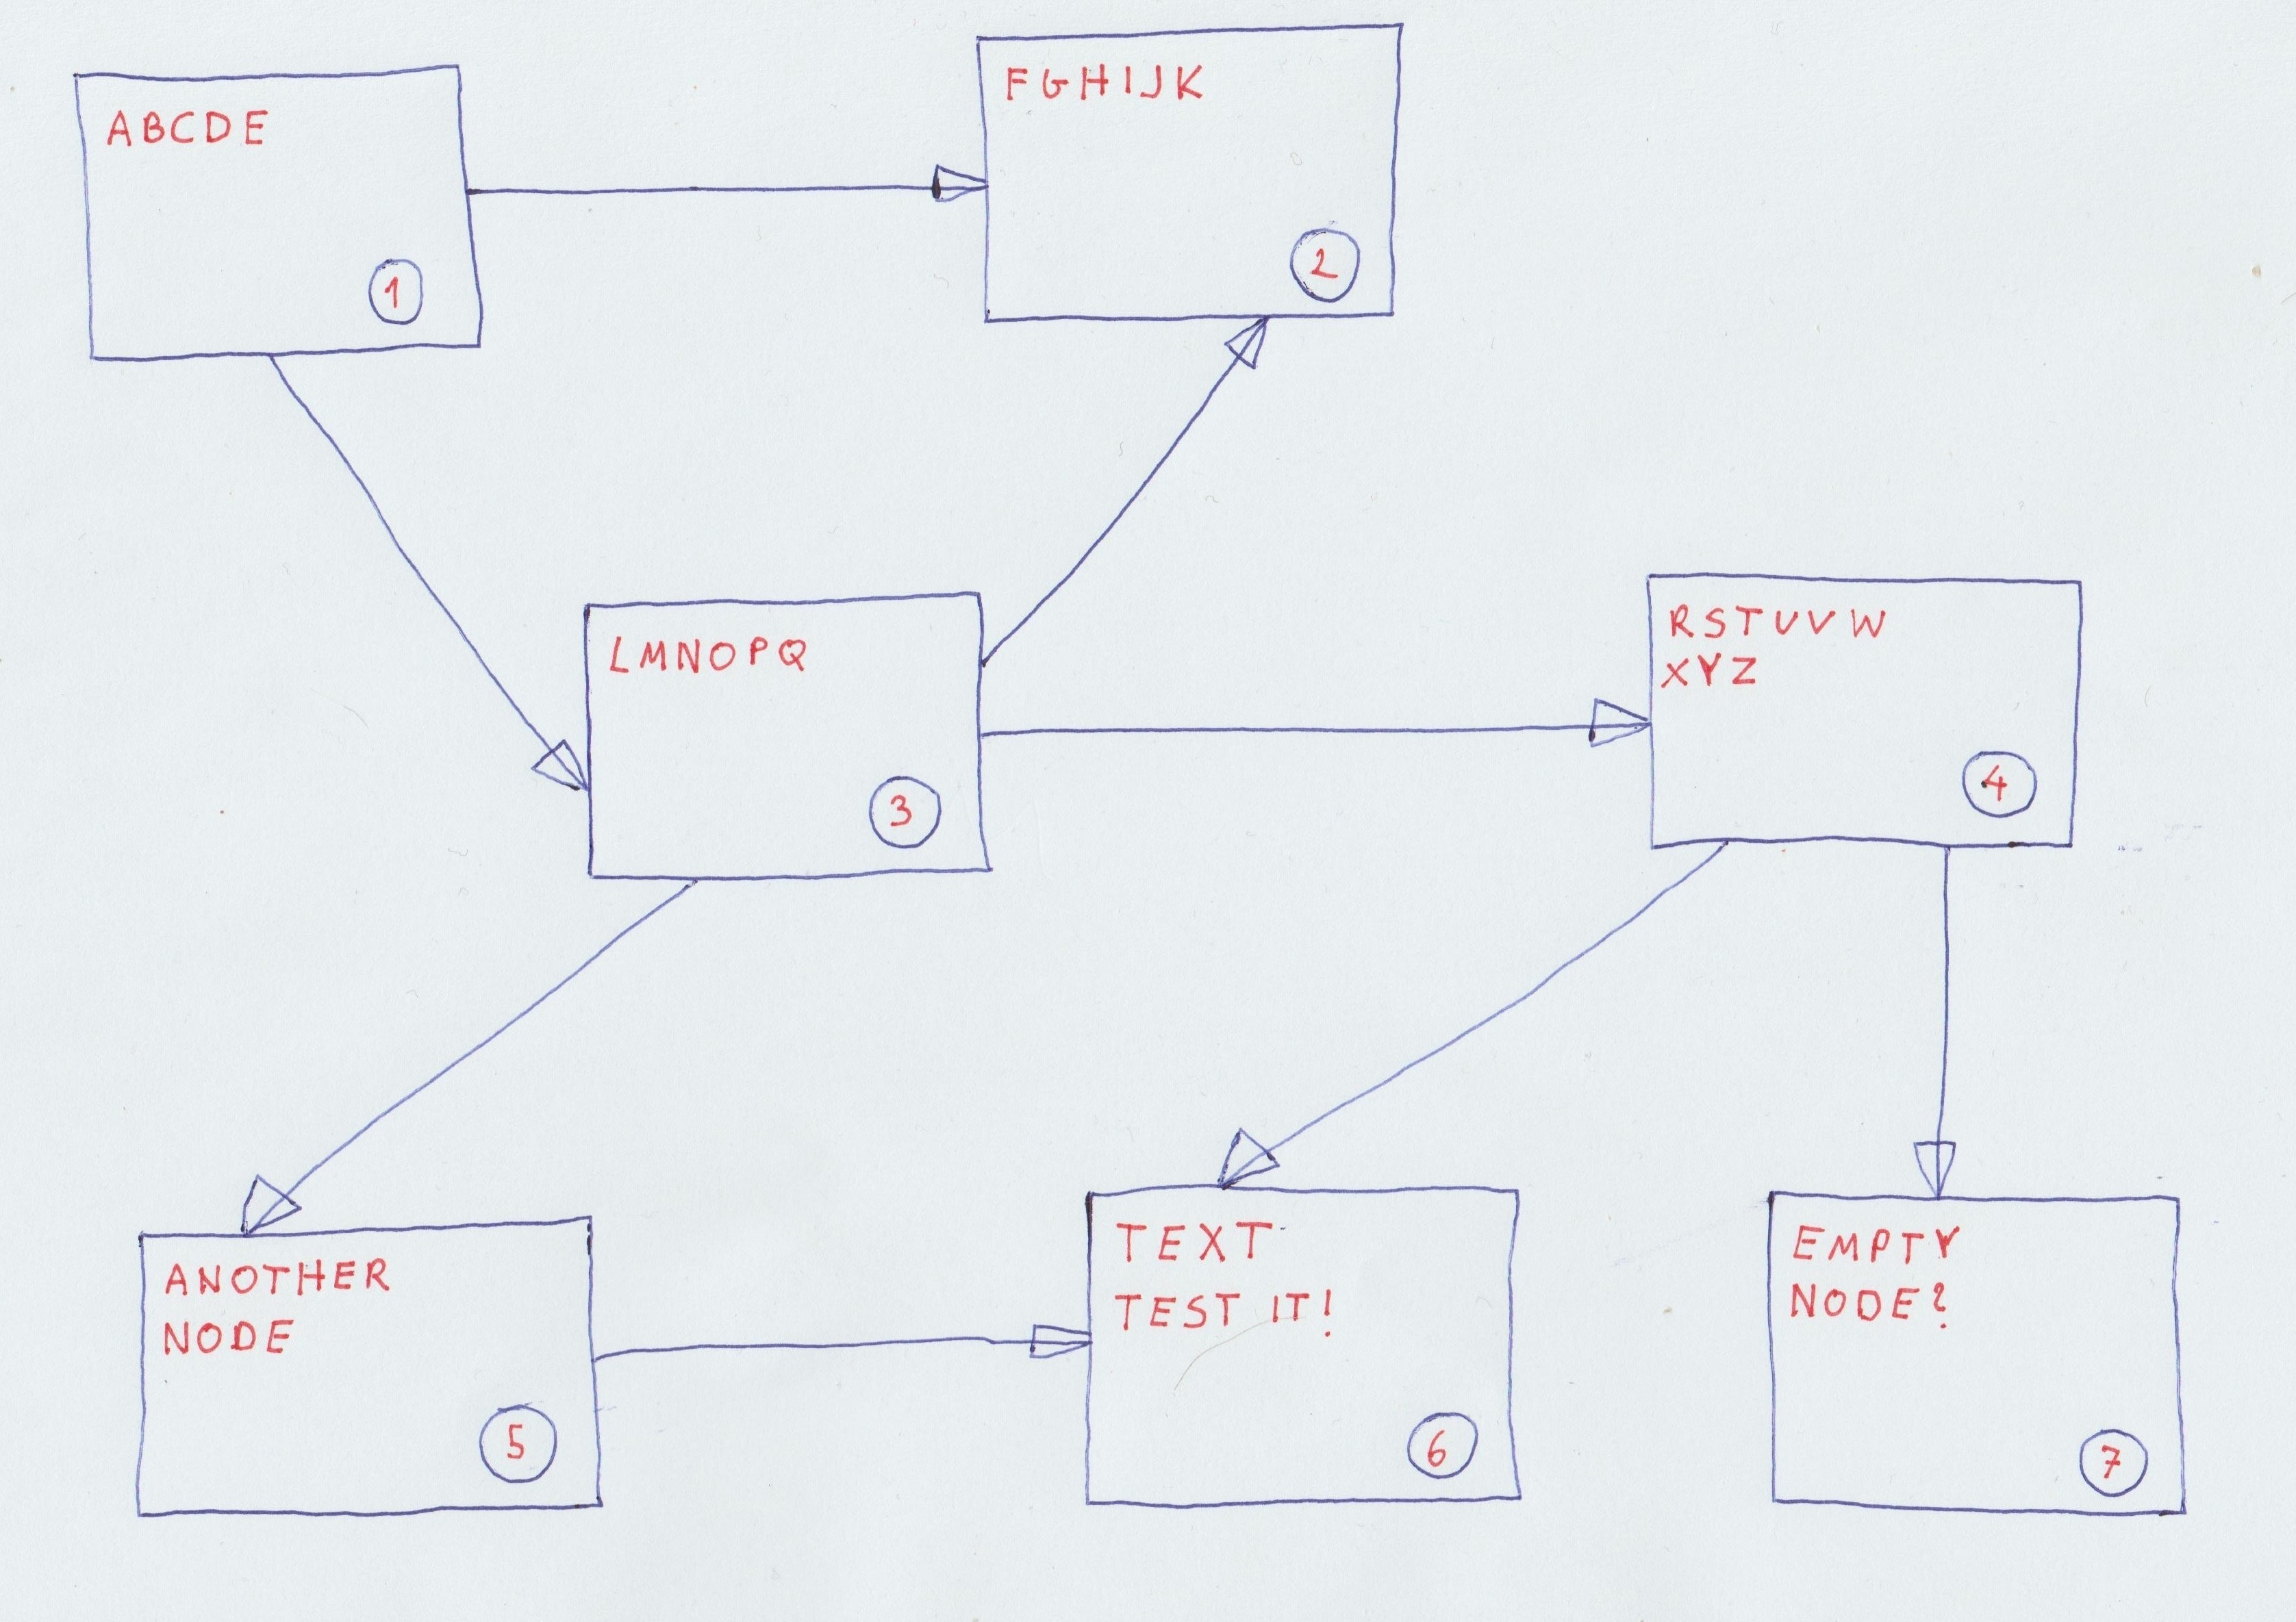 ABCDE
1
FGHIJK
2
LMNOPQ
3
RSTUVW
XYZ
4
ANOTHER
NODE
5
TEXT
TEST IT!
6
EMPTY
NODE?
7